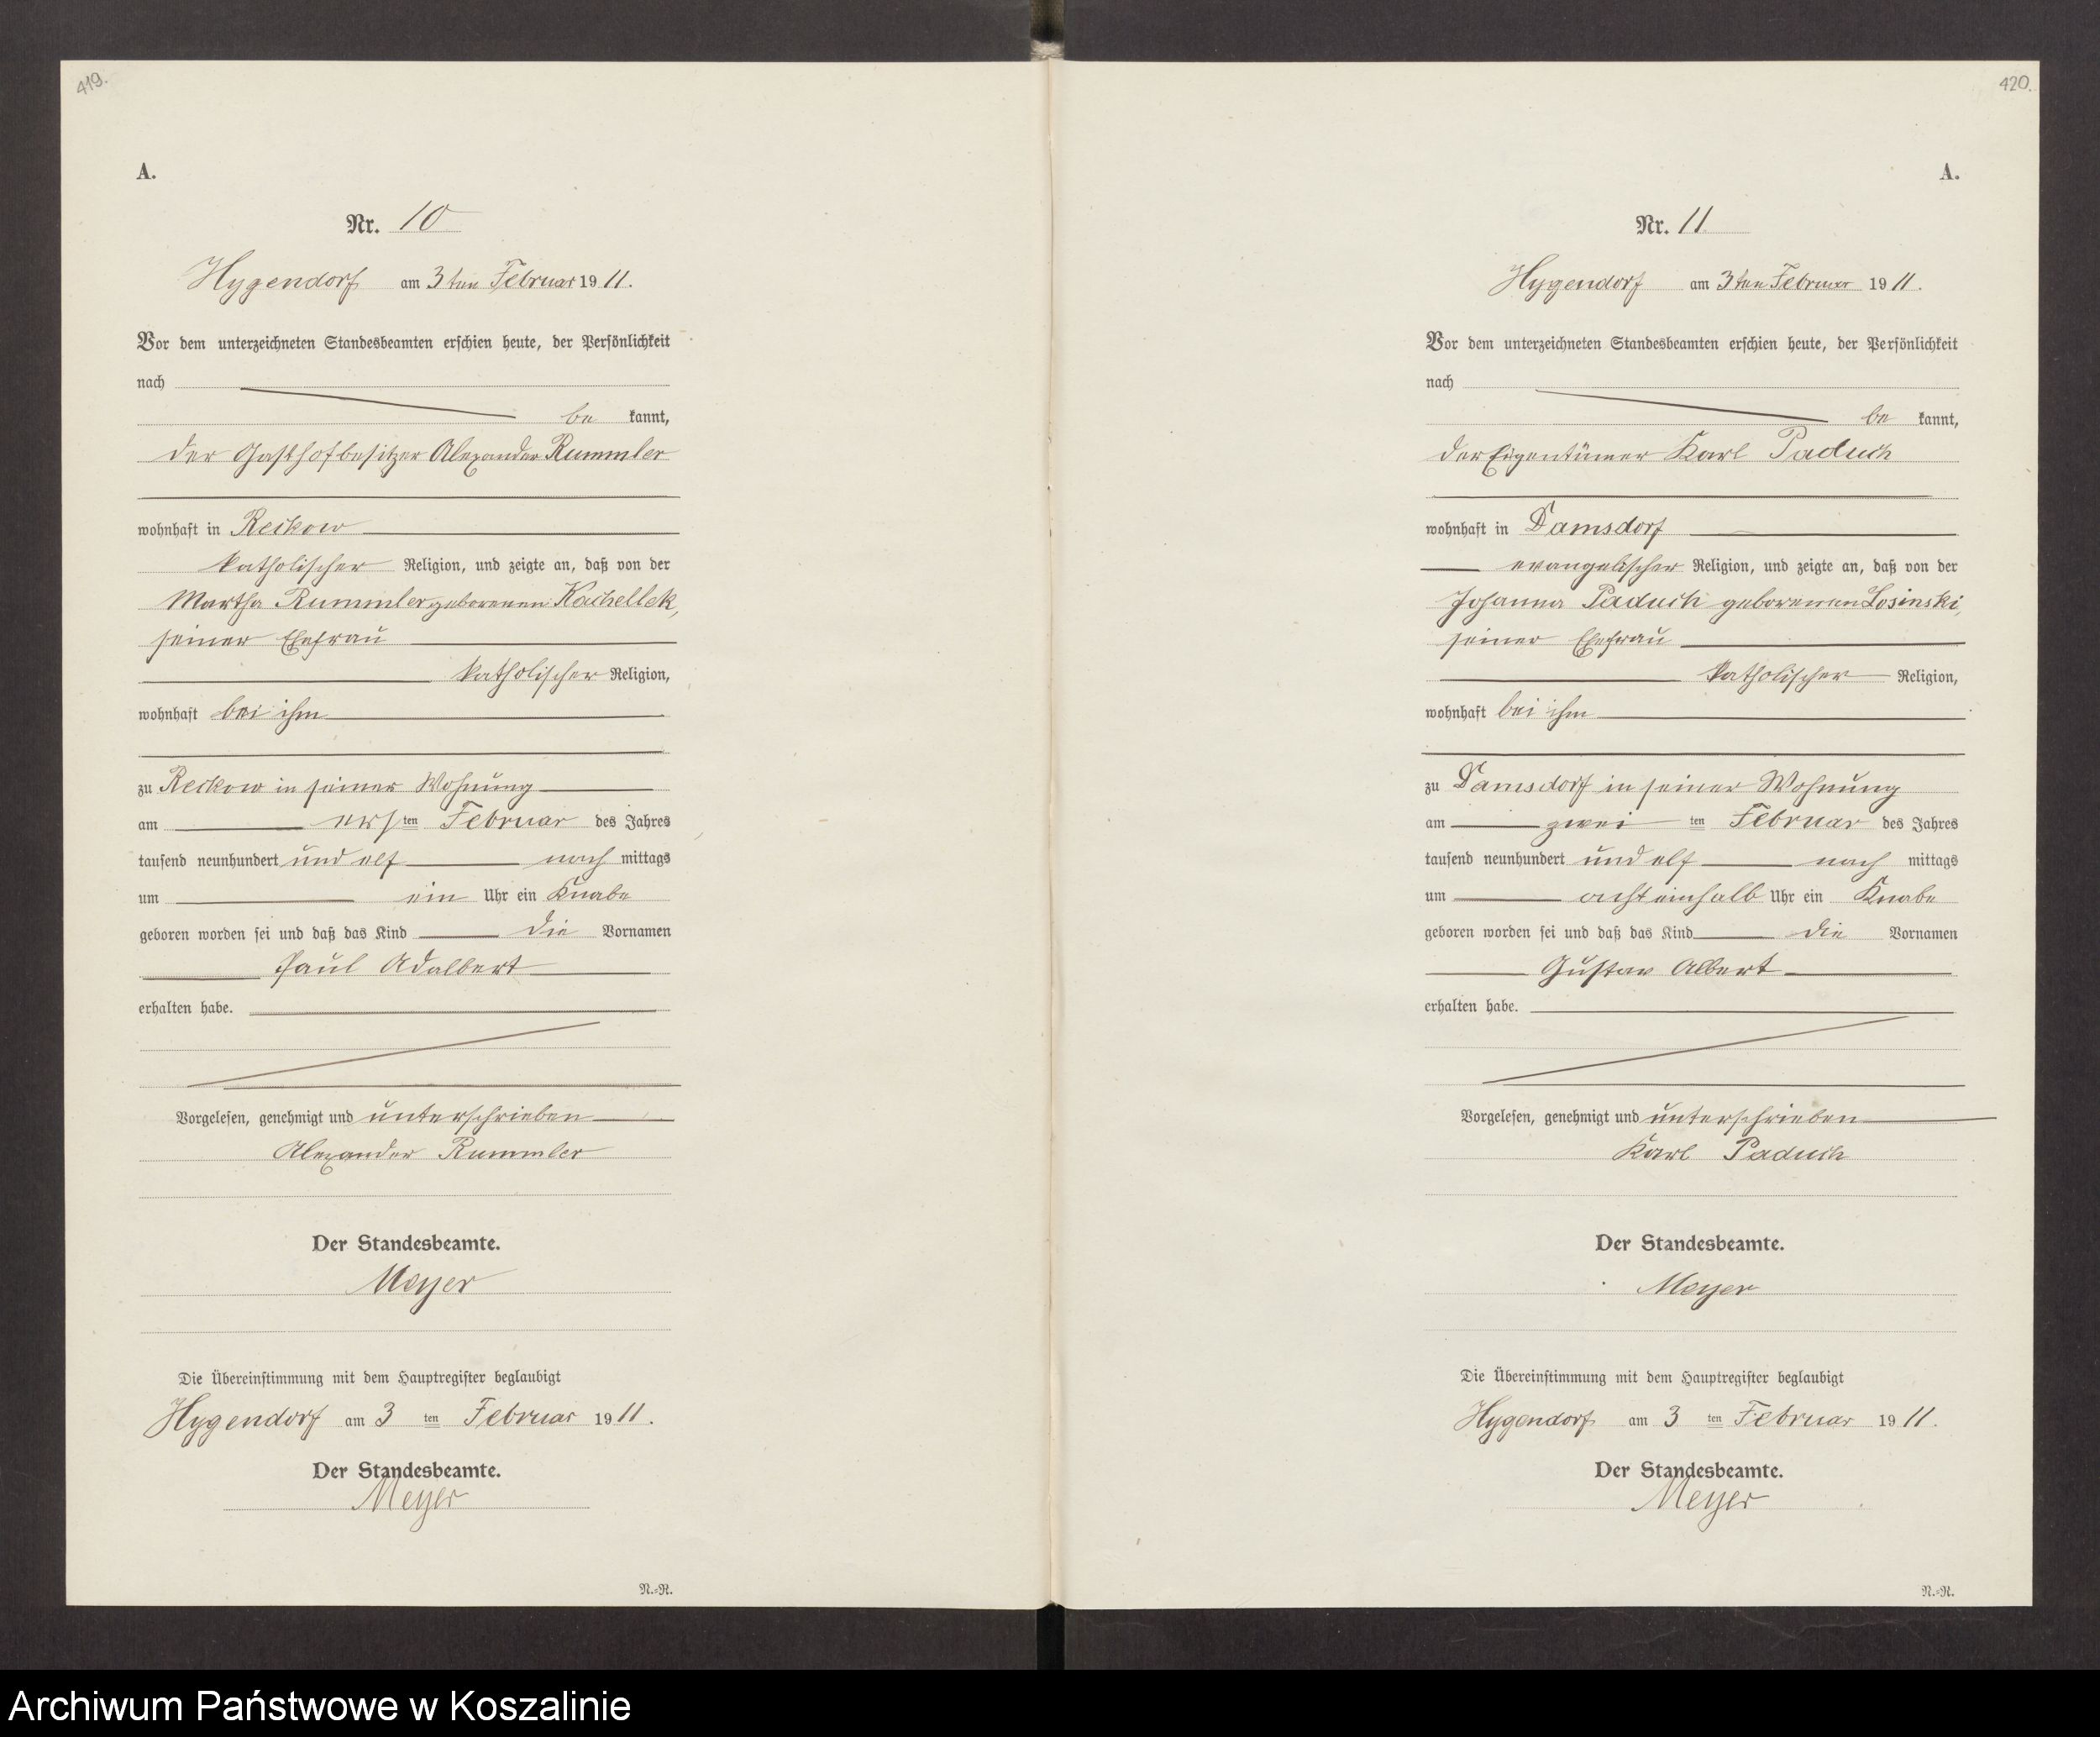 419.
A.
Nr. 10
Hygendorf am 3ten Februar 1911.
Vor dem unterzeichneten Standesbeamten erschien heute, der Persönlichkeit
nach
be kannt,
der Gasthofbesitzer Alexander Rummler
wohnhaft in Reckow
katholischer Religion, und zeigte an, daß von der
Martha Rummler geborenen Kachellek,
seiner Ehefrau
katholischer Religion,
wohnhaft bei ihm
zu Reckow in seiner Wohnung
am ersten Februar des Jahres
tausend neunhundert und elf nach mittags
um ein Uhr ein Knabe
geboren worden sei und daß das Kind die Vornamen
Paul Adalbert
erhalten habe.
Vorgelesen, genehmigt und unterschrieben
Alexander Rummler
Der Standesbeamte.
Meyer
Die Übereinstimmung mit dem Hauptregister beglaubigt
Hygendorf am 3 ten Februar 1911.
Der Standesbeamte.
Meyer
N.-N.
420.
A.
Nr. 11
Hygendorf am 3ten Februar 1911.
Vor dem unterzeichneten Standesbeamten erschien heute, der Persönlichkeit
nach
be kannt,
der Eigentümer Karl Paduch
wohnhaft in Damsdorf
evangelischer Religion, und zeigte an, daß von der
Johanna Paduch geborenen Losinski,
seiner Ehefrau
katholischer Religion,
wohnhaft bei ihm
zu Damsdorf in seiner Wohnung
am zwei ten Februar des Jahres
tausend neunhundert und elf nach mittags
um acht einhalb Uhr ein Knabe
geboren worden sei und daß das Kind die Vornamen
Gustav Albert
erhalten habe.
Vorgelesen, genehmigt und unterschrieben
Karl Paduch
Der Standesbeamte.
Meyer
Die Übereinstimmung mit dem Hauptregister beglaubigt
Hygendorf am 3 ten Februar 1911.
Der Standesbeamte.
Meyer
N.-N.
Archiwum Państwowe w Koszalinie